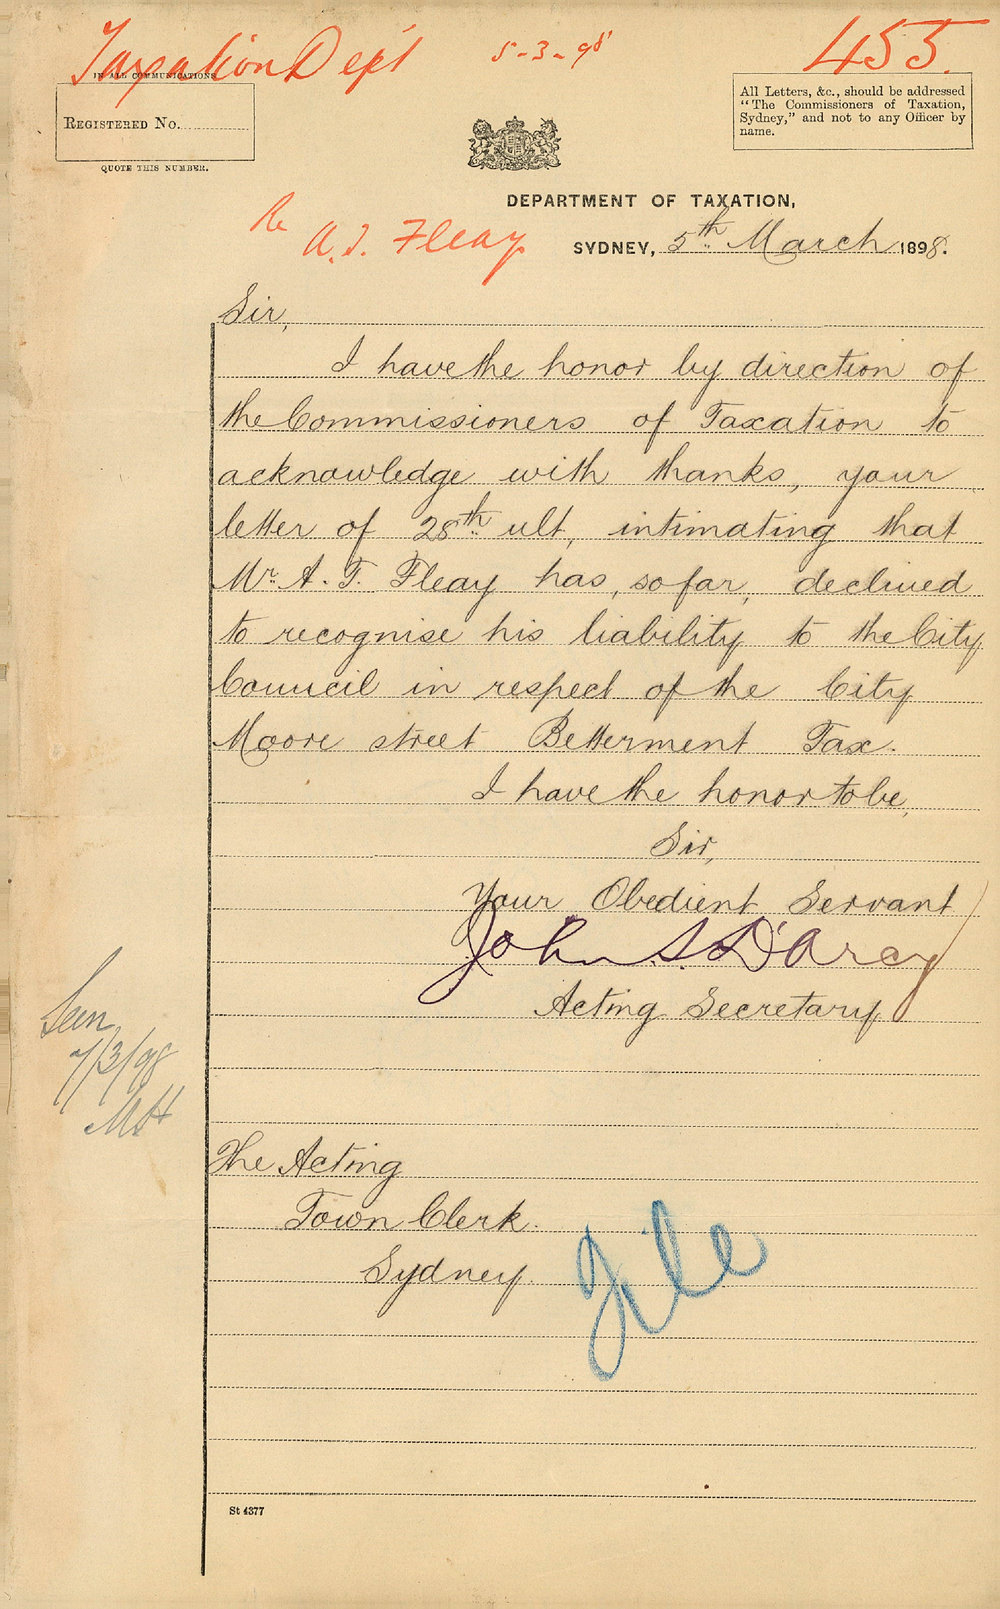 Taxation Dep't
5-3-98
455.
IN ALL COMMUNICATIONS
REGISTERED NO.
QUOTE THIS NUMBER.
All Letters, &c., should be addressed
"The Commissioners of Taxation,
Sydney," and not to any Officer by
name.
DEPARTMENT OF TAXATION,
Re A. T. Fleay
SYDNEY, 5th March 1898.
Sir,
I have the honor by direction of
the Commissioners of Taxation to
acknowledge with thanks, your
letter of 28th ult, intimating that
Mr. A. T. Fleay has, so far, declined
to recognise his liability to the City
Council in respect of the City
Moore street Betterment Tax.
I have the honor to be,
Sir,
Your Obedient Servant
John S. D'Arcy
Acting Secretary
Seen
7/3/98
The Acting
Town Clerk.
Sydney.
File
St 4377